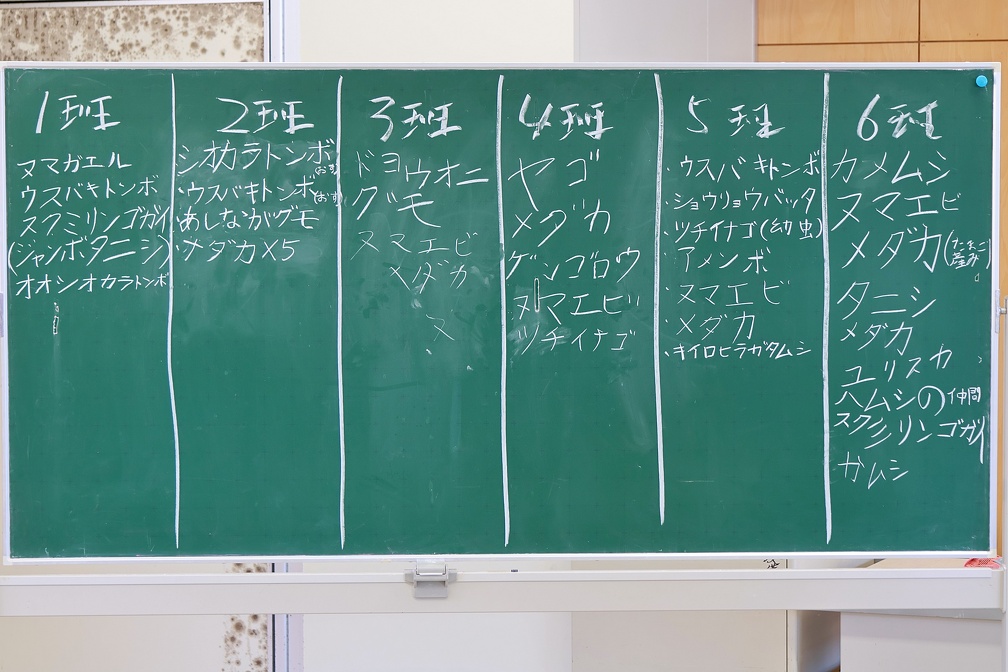 1班
ヌマガエル
ウスバキトンボ
スクミリンゴガイ
(ジャンボタニシ)
オオシオカラトンボ
2班
シオカラトンボおす
・ウスバキトンボおす
・あしながグモ
・メダカ×5
3班
ドヨウオニ
グモ
ヌマエビ
メダカ
ヌ
4班
ヤゴ
メダカ
ゲンゴロウ
ヌマエビ
ツチイナゴ
5班
・ウスバキトンボ
・ショウリョウバッタ
・ツチイナゴ(幼虫)
・アメンボ
・ヌマエビ
・メダカ
・キイロヒラガタムシ
6班
カメムシ
ヌマエビ
メダカ
タニシ
メダカ
ユリスカ
ハムシの仲間
スクミリンゴガイ
ガムシ